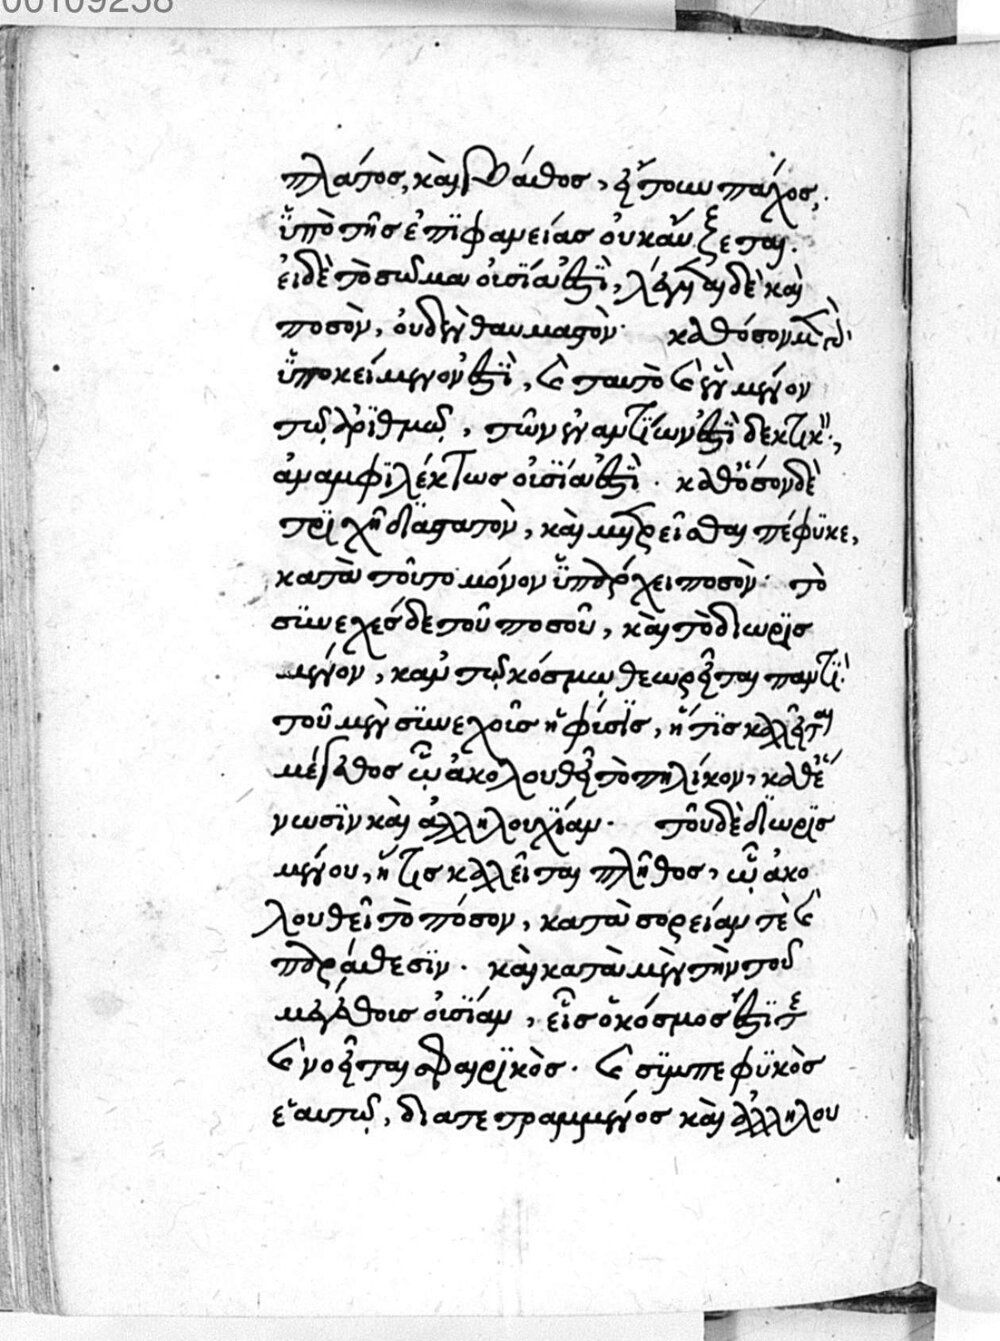 00109258
πλάτος, καὶ βάθος, ἤτουν πάχος,
ὑπὸ τῆς ἐπιφανείας οὐκ αὔξεται.
εἰ δὲ τὸ σῶμα οὐσία ἐστὶ, λέγεται δὲ καὶ
ποσὸν, οὐδὲν θαυμαστὸν· καθόσον μὲν
ὑποκείμενον ἐστὶ, καὶ ταυτὸ καὶ ἓν μένον
τῷ ἀριθμῷ, τῶν ἐναντίων ἐστὶ δεκτικὸν,
ἀναμφιλέκτως οὐσία ἐστὶ. καθόσον δὲ
τριχῆ διαστατὸν, καὶ μετρεῖσθαι πέφυκε,
κατὰ τοῦτο μόνον ὑπάρχει ποσὸν· τὸ
συνεχὲς δὲ τοῦ ποσοῦ, καὶ τὸ διωρισ
μένον, κἀν τῷ κόσμῳ θεωρεῖται παντί·
τοῦ μὲν συνεχοῦς ἡ φύσις, ἥτις καλεῖται
μέγεθος ᾧ ἀκολουθεῖ τὸ πηλίκον, καθ' ἕ
νωσιν καὶ ἀλληλουχίαν· τοῦ δὲ διωρισ
μένου, ἥτις καλεῖται πλῆθος, ᾧ ἀκο
λουθεῖ τὸ πόσον, κατὰ σορείαν τὲ καὶ
παράθεσιν. καὶ κατὰ μὲν τὴν τοῦ
μεγέθους οὐσίαν, εἷς ὁ κόσμος ἐστί τε
καὶ νοεῖται σφαιρικὸς. καὶ συμπεφυκὸς
ἑαυτῷ, διατετραμμένος καὶ ἀλληλου